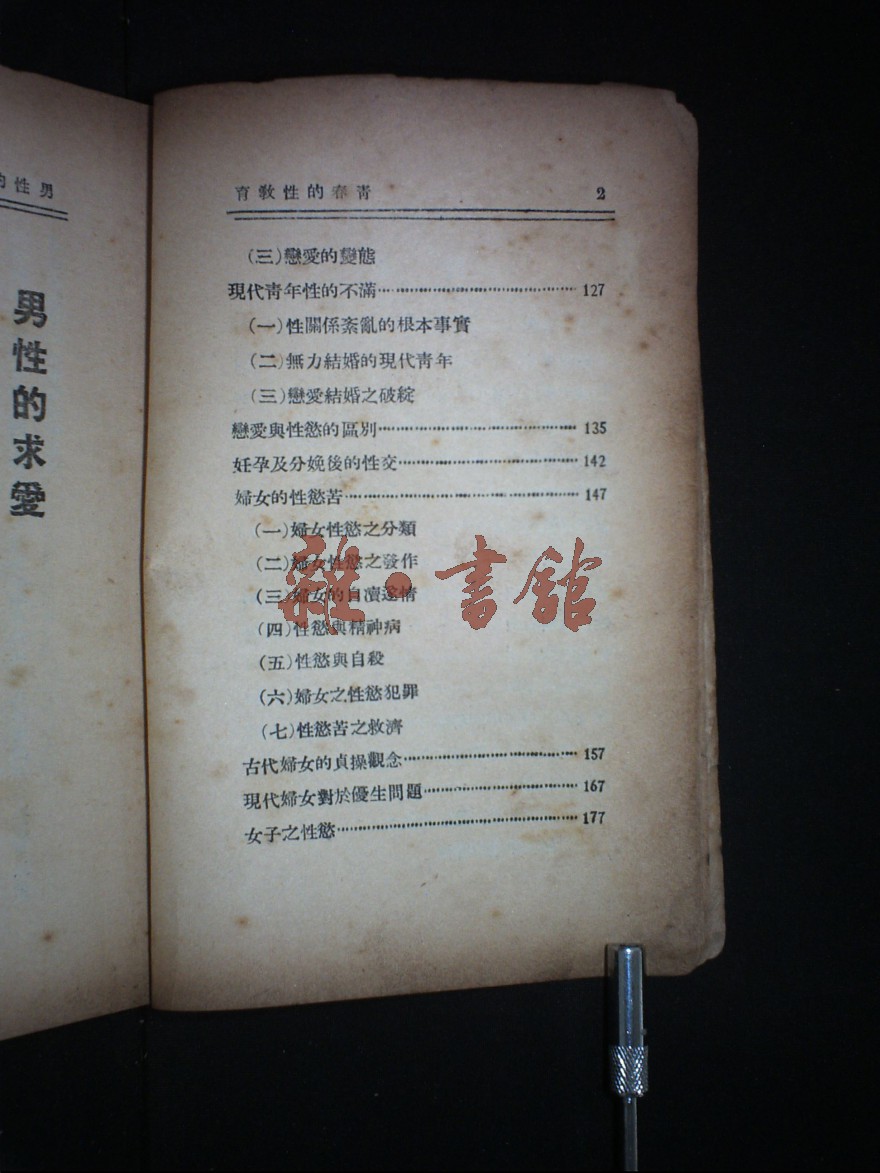 育教性的春青 2
(三)戀愛的變態
現代靑年性的不滿 127
(一)性關係紊亂的根本事實
(二)無力結婚的現代靑年
(三)戀愛結婚之破綻
戀愛與性慾的區別 135
妊孕及分娩後的性交 142
婦女的性慾苦 147
(一)婦女性慾之分類
(二)婦女性慾之發作
(三)婦女的自瀆遂情
(四)性慾與精神病
(五)性慾與自殺
(六)婦女之性慾犯罪
(七)性慾苦之救濟
古代婦女的貞操觀念 157
現代婦女對於優生問題 167
女子之性慾 177
的性男
男性的求愛
雜·書館